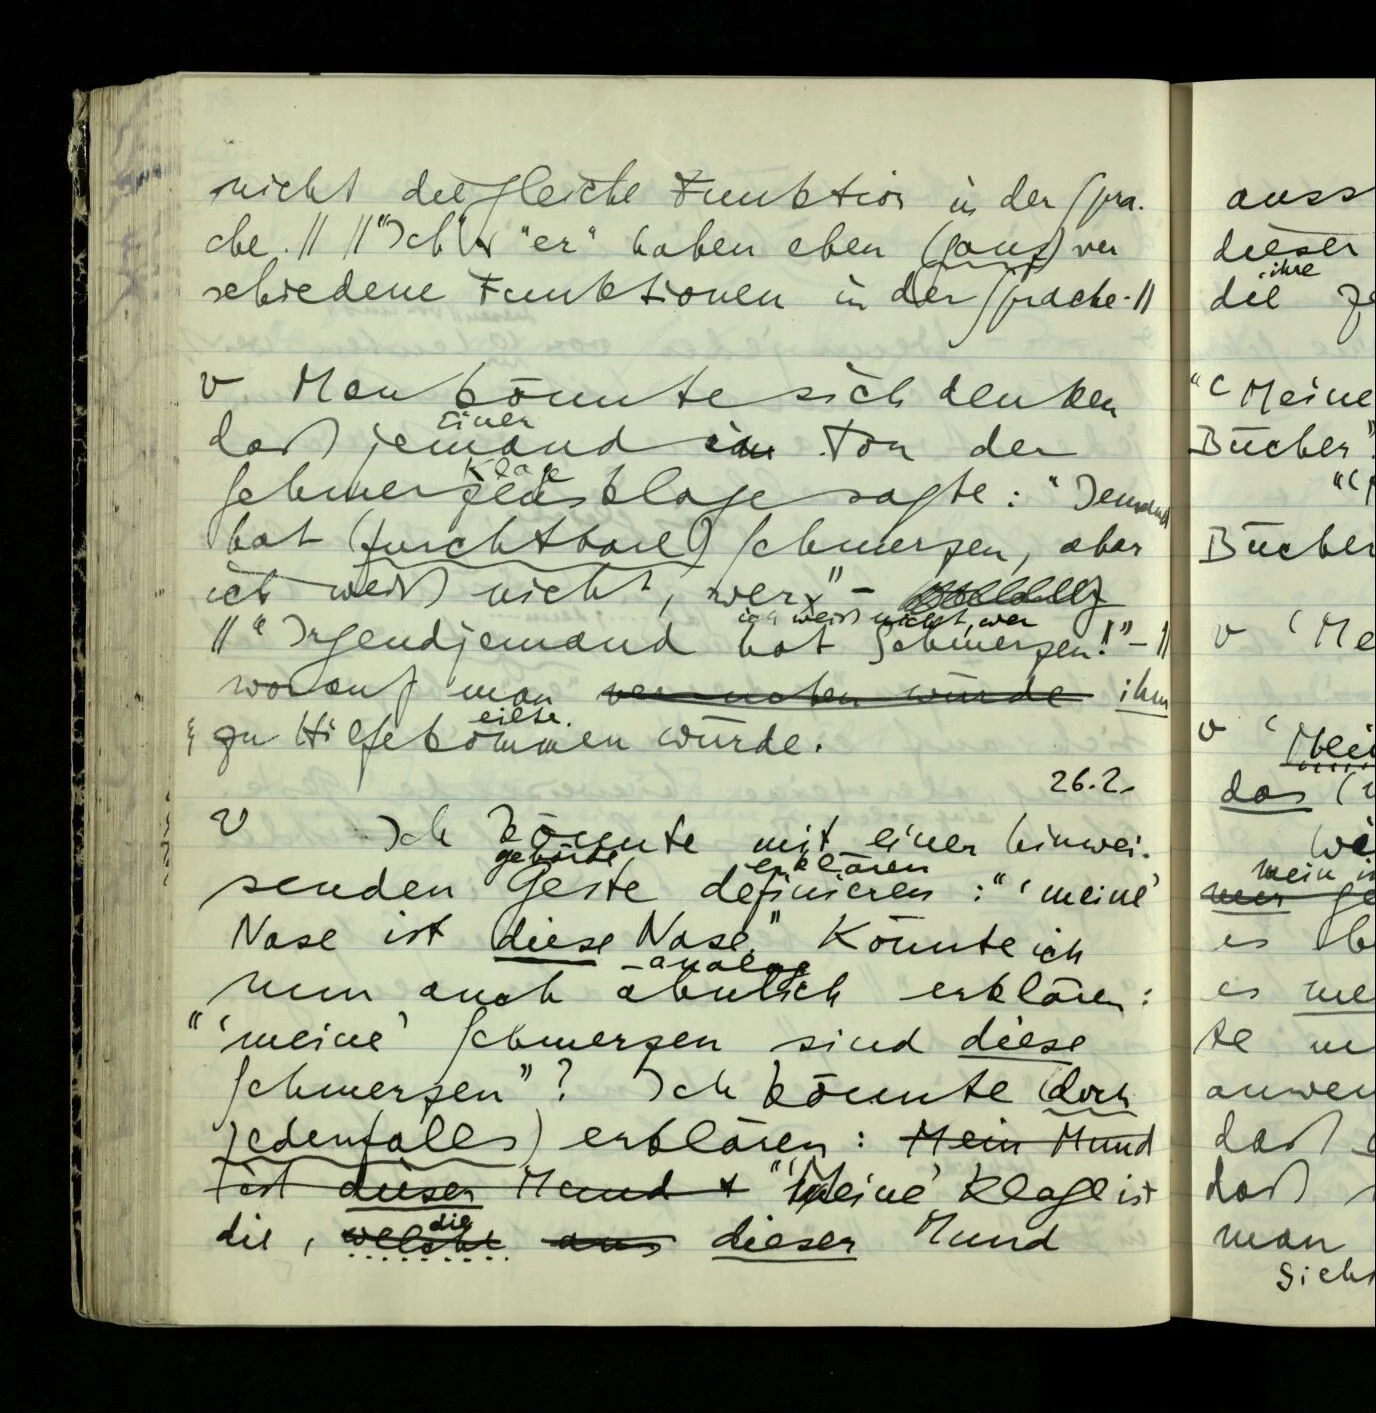 nicht die gleiche Funktion in der Spra-
che. // //"Ich" & "er" haben eben (ganz) ver
schiedene Funktionen in der Sprache.//
v Man könnte sich denken
Einer
daß jemand im Ton der
Klage
Schmerzensklage sagte: "Jemand
hat (furchtbare) Schmerzen, aber
ich weiß nicht, wer" –
ich weiß nicht, wer
//"Irgendjemand hat Schmerzen!"–//
worauf man versuchen würde ihm
eilte.
zu Hilfe kommen würde.
26.2.
v Ich könnte mit einer hinwei-
gebärde erklären
senden Geste definieren: "'meine'
Nase ist diese Nase." Könnte ich
analog
nun auch ähnlich erklären:
"'meine' Schmerzen sind diese
Schmerzen"? Ich könnte (doch
jedenfalls) erklären: Mein Mund
ist dieser Mund & "'Meine' Klage ist
die
die, welche aus dieser Mund
auss
dieser
ihre
die
"'Meine
Bücher"
Bücher
v 'Me
v 'Mei
das
mein
es
es
te
anwen
daß
daß
man